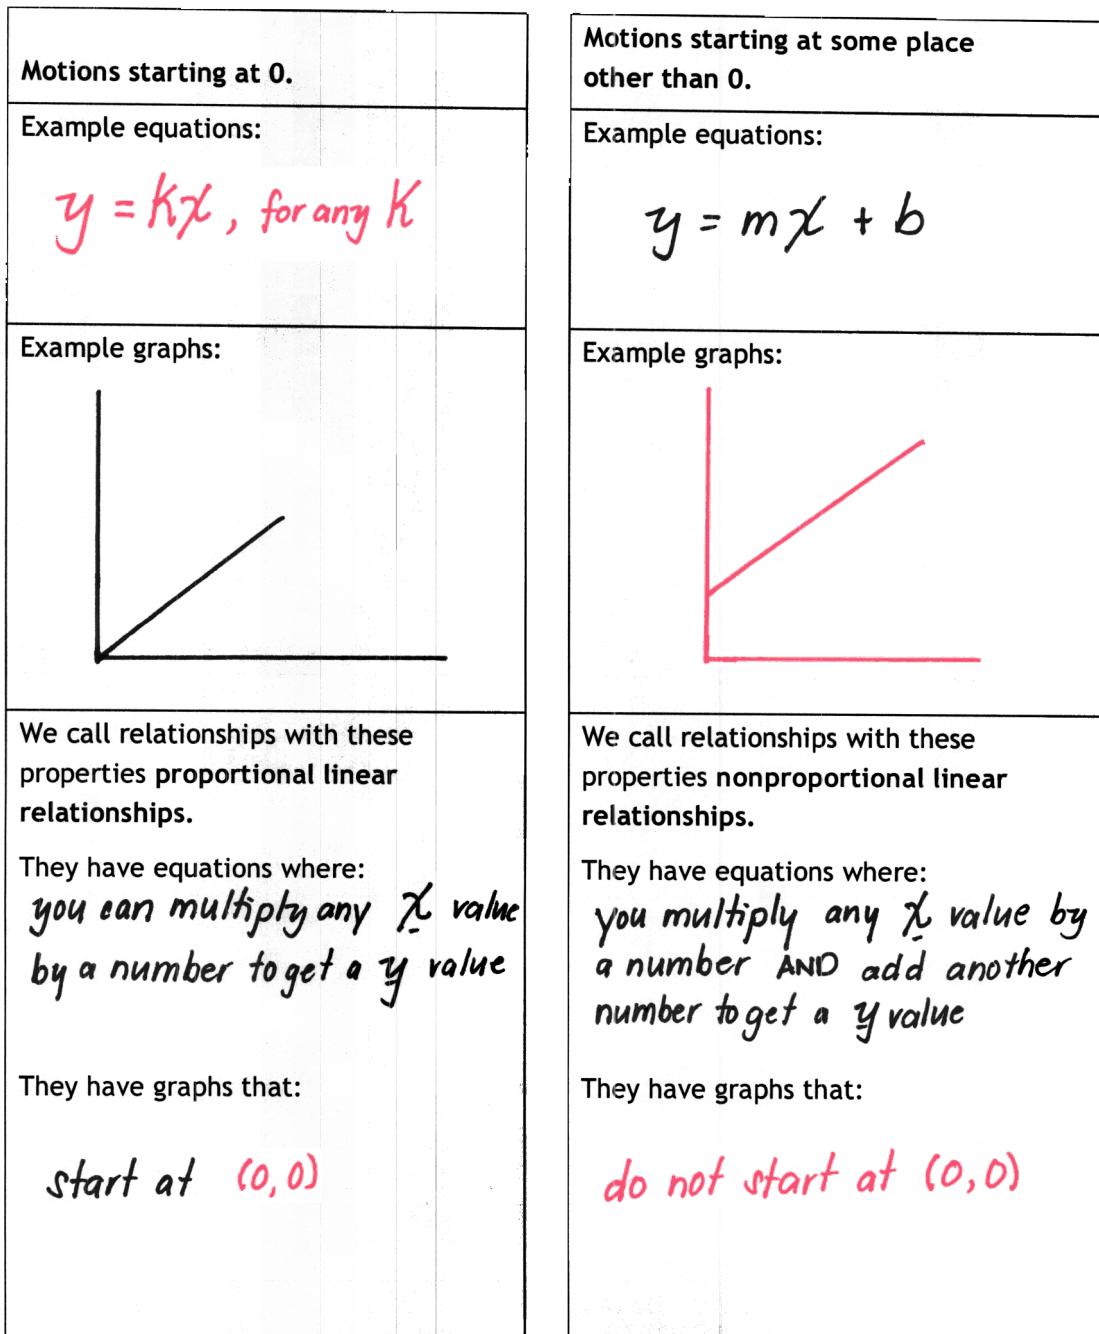 Motions starting at 0.
Example equations:
y = kx, for any K
Example graphs:
We call relationships with these
properties proportional linear
relationships.
They have equations where:
you can multiply any x value
by a number to get a y value
They have graphs that:
start at (0,0)
Motions starting at some place
other than 0.
Example equations:
y = mx + b
Example graphs:
We call relationships with these
properties nonproportional linear
relationships.
They have equations where:
you multiply any x value by
a number AND add another
number to get a y value
They have graphs that:
do not start at (0,0)